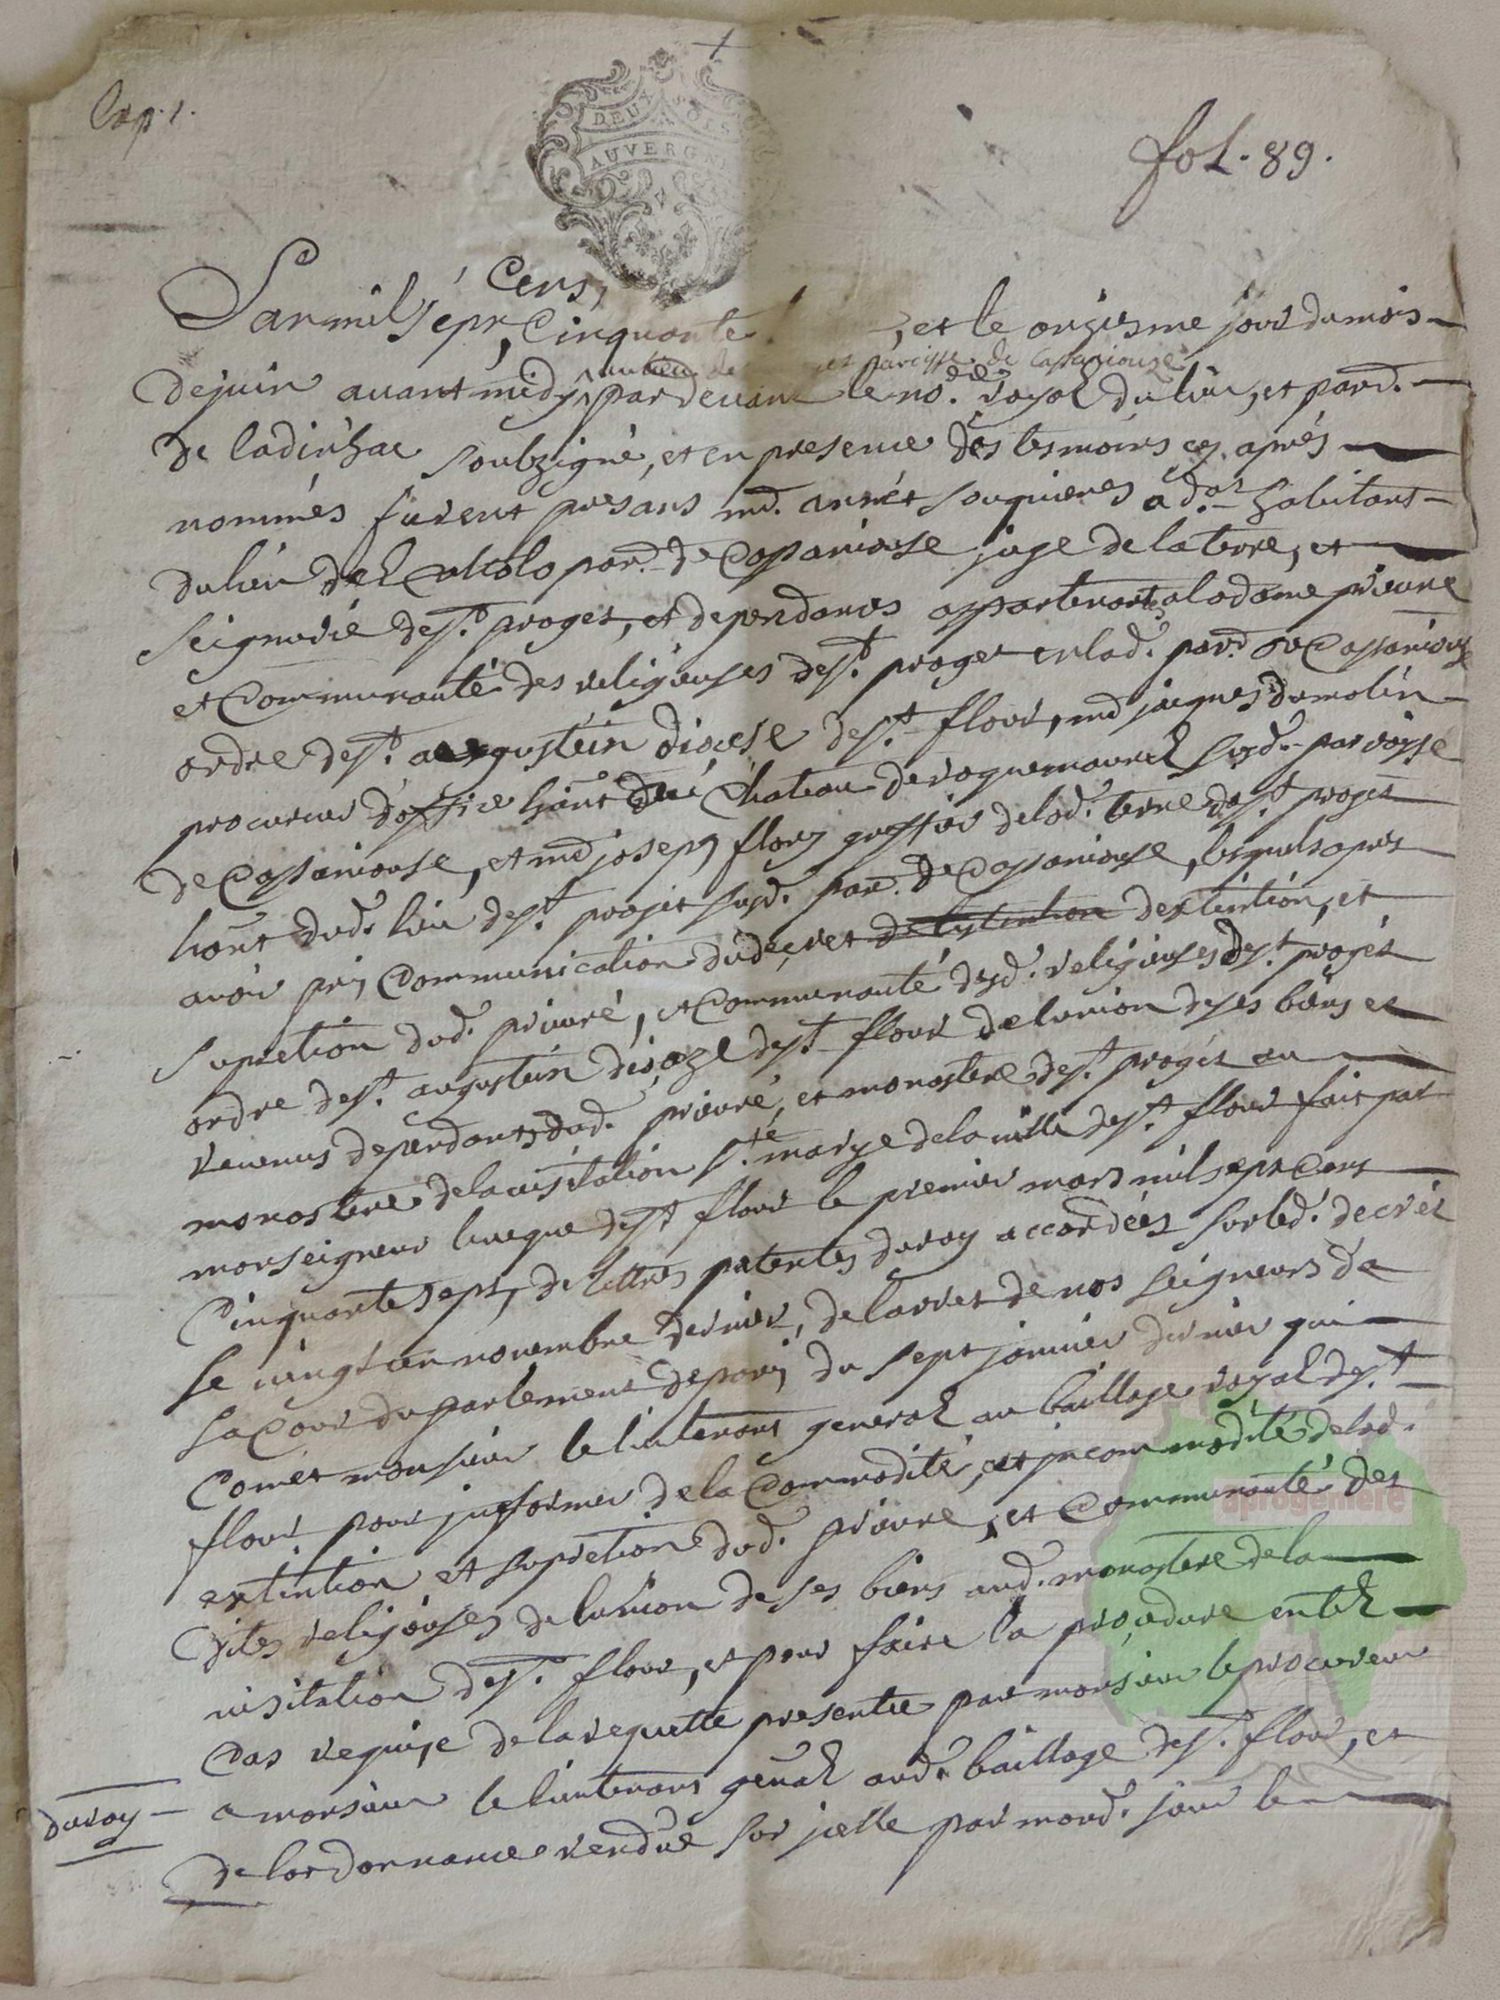 Cap. 1.
DEUX SOLS
AUVERGNE
fol. 89.
Cens,
L'an mil sept, Cinquante , et le onziesme jour du mois
de juin avant midy, par devant le no.re royal du lieu, et parr.
au lieu de et paroisse de Cassaniouze
de ladinhac soubzigné, et en presence des tesmoins cy aprés
nommés furent presans md. annet souquieres ad.at habitant
du lieu del parr. de Cassaniouse juge de la terre, et
seigneurie de st. proget, et dependances appartenantes a la dame prieure
et Communauté des religieuses de st. proget en lad. parr. de Cassaniouze
ordre de st. augustin diocese de st. flour, md jacques dumolin
procureur d'office habnt du Chateau de roquemaurel susd. paroisse
de Cassaniouse, et md joseph flory greffier de lad. terre de st. proget
habnt dud. lieu de st. projet susd. parr. de Cassaniouse, lesquels apres
avoir pris Communication du decret d'extintion, et
supretion dud. prieuré, et Communauté desd. religieuses de st. proget
ordre de st. augustin diocaze de st. flour de l'union de ses biens et
revenus dependants dud. prieuré, et monastere de st. proget au
monastere de la visitation s.te marye de la ville de st. flour fait par
monseigneur l'eveque de st. flour le premier mars mil sept Cens
Cinquante sept, de lettres patentes du roy accordées sur led. decret
le vingt un novembre dernier, de l'arret de nos seigneurs de
la Cour du parlement de paris du sept janvier dernier qui
Comet monsieur le lieutenant general au baillage royal de st.
flour pour jnformer de la Commodité, et jncommodité de lad.
extintion et supretion dud. prieuré, et Communauté des
dites religieuses de l'union de ses biens aud. monastere de la
visitation de st. flour, et pour faire la procedure en tel
Cas requise de la requette presentée par monsieur le procureur
duroy
a monsieur le lieutenant genal aud. baillage de st. flour, et
de l'ordonnance rendue sur jcelle par mond. sieur le
aprogeniere